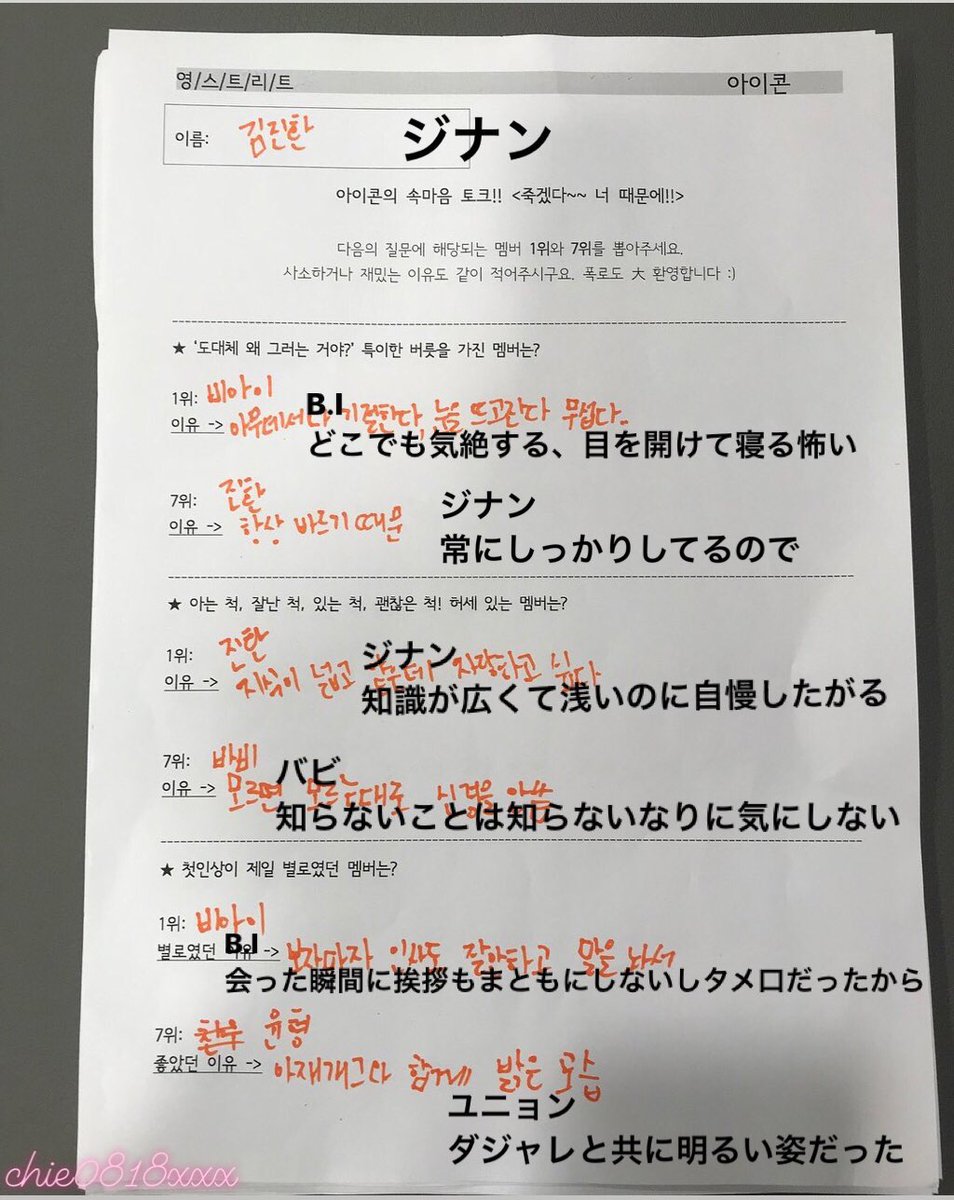 영/스/트/리/트 아이콘
이름: 김진환 ジナン
아이콘의 속마음 토크!! <죽겠다~~ 너 때문에!!>
다음의 질문에 해당되는 멤버 1위와 7위를 뽑아주세요.
사소하거나 재밌는 이유도 같이 적어주시구요. 폭로도 大 환영합니다 :)
★ '도대체 왜 그러는 거야?' 특이한 버릇을 가진 멤버는?
1위: 비아이 B.I
이유 -> 아무데서나 기절한다, 눈을 뜨고잔다 무섭다..
どこでも気絶する、目を開けて寝る怖い
7위: 진환 ジナン
이유 -> 항상 바르기 때문
常にしっかりしてるので
★ 아는 척, 잘난 척, 있는 척, 괜찮은 척! 허세 있는 멤버는?
1위: 진환 ジナン
이유 -> 지식이 넓고 자랑하고 싶다
知識が広くて浅いのに自慢したがる
7위: 바비 バビ
이유 -> 모르면 모르는대로 신경을 안씀
知らないことは知らないなりに気にしない
★ 첫인상이 제일 별로였던 멤버는?
1위: 비아이 B.I
별로였던 이유 -> 보자마자 인사도 잘안하고 말을 놔서
会った瞬間に挨拶もまともにしないしタメ口だったから
7위: 찬우 윤형
좋았던 이유 -> 아재개그와 함께 밝은 모습
ユニョン
ダジャレと共に明るい姿だった
chie0818xxxx